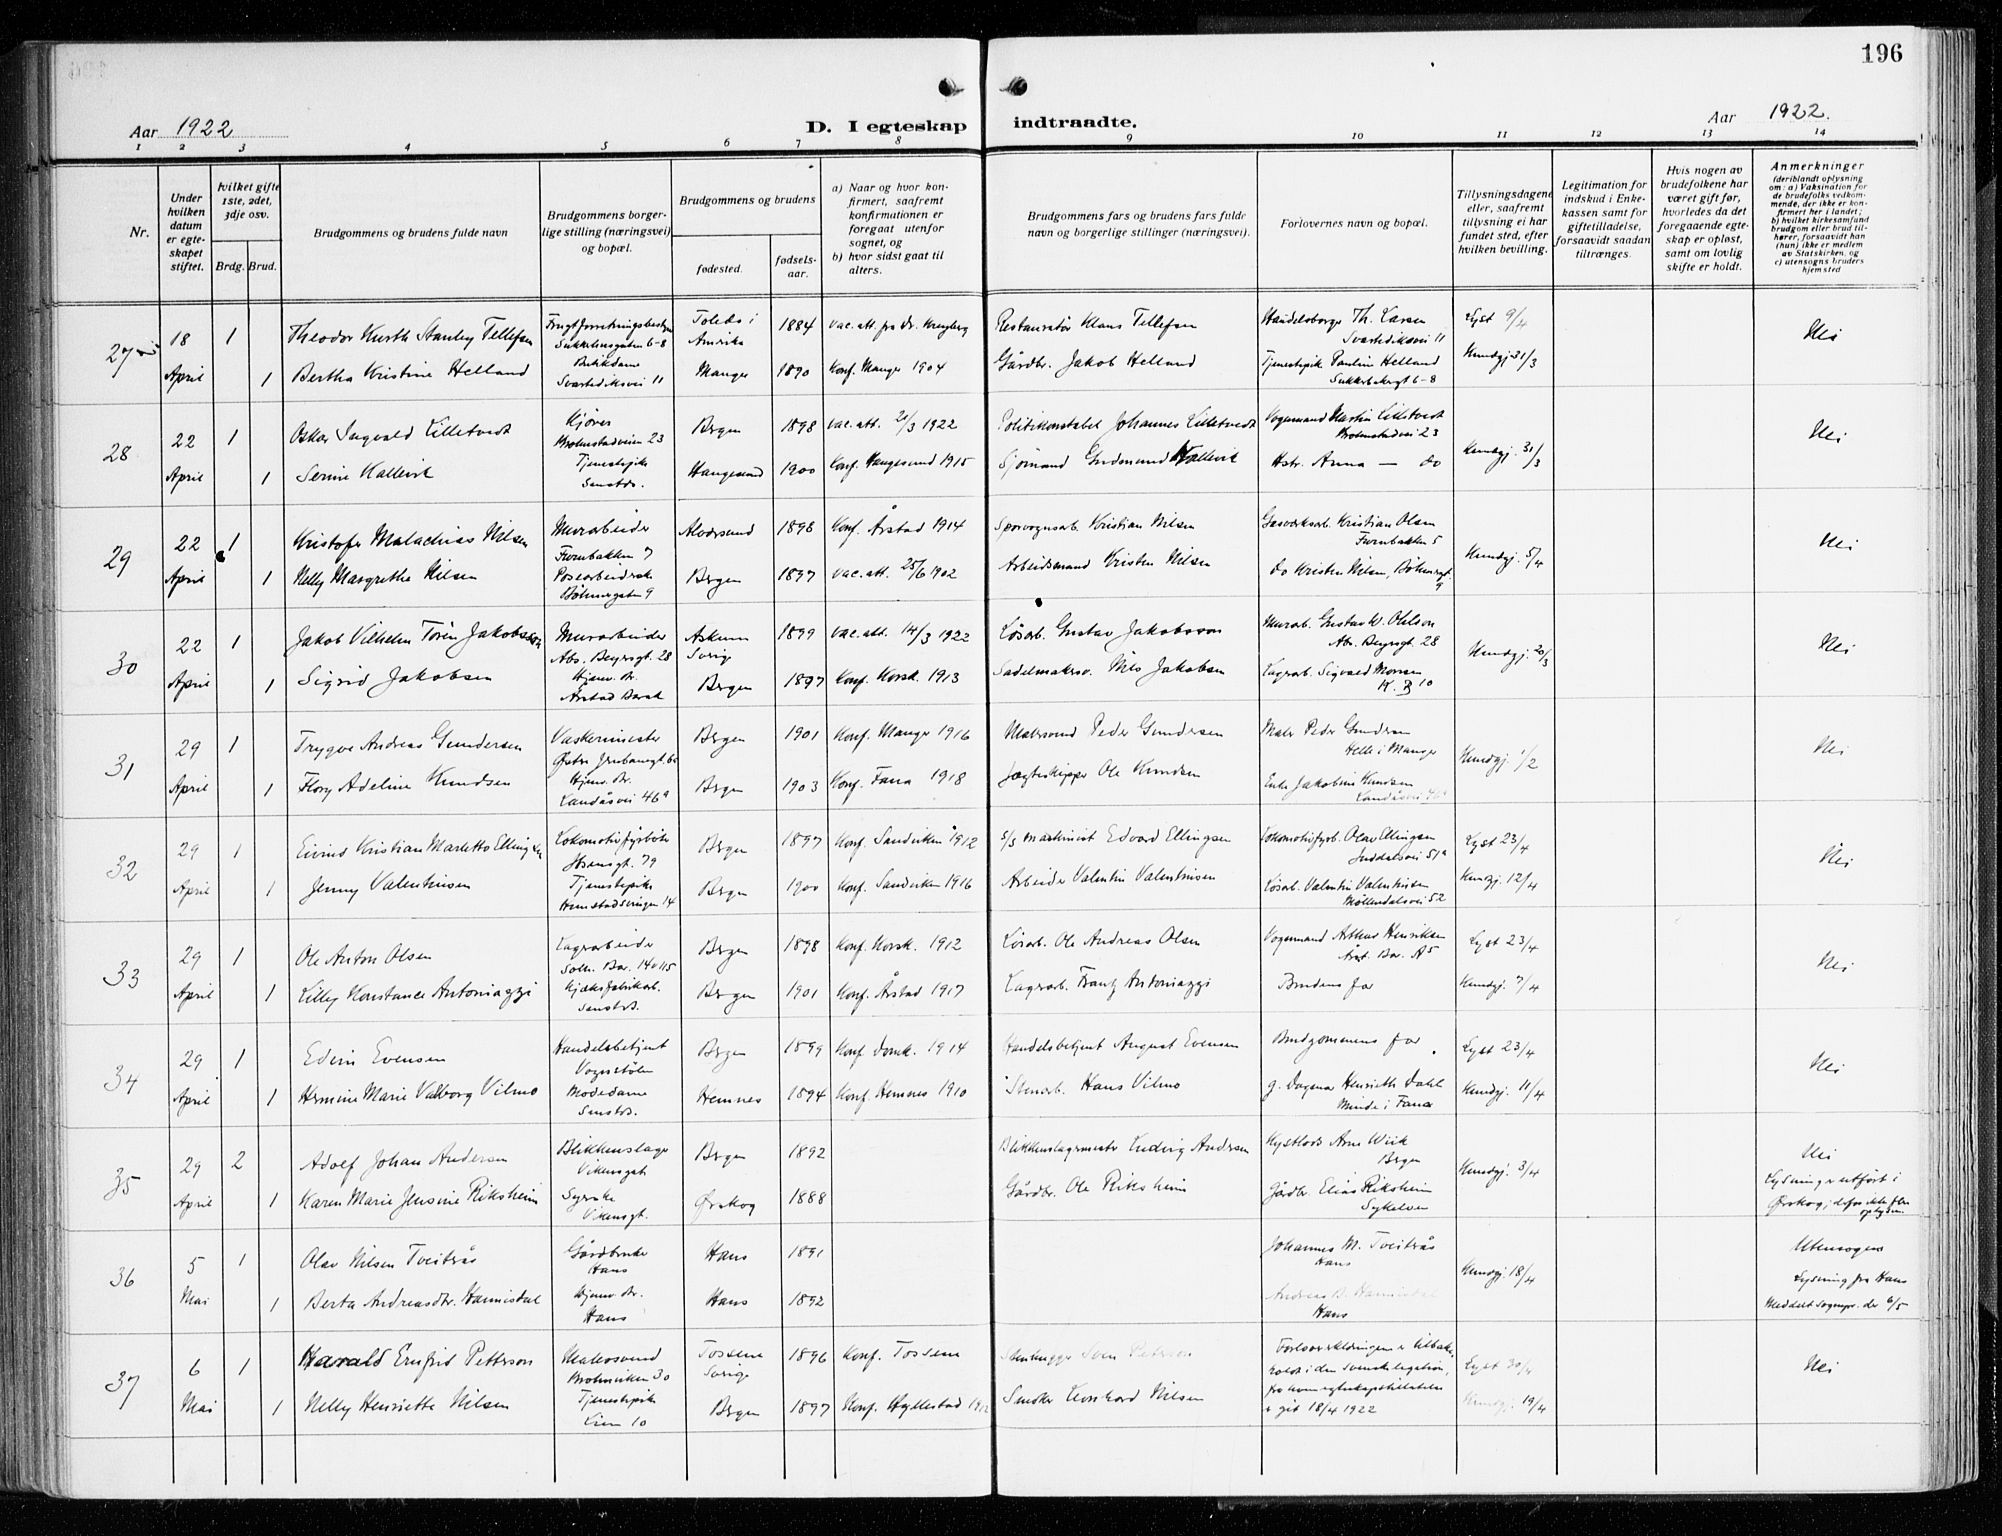 196
Aar 1922 D. I egteskap indtraadte. Aar 1922.
1 2 3 4 5 6 7 8 9 10 11 12 13 14
Nr.
Under hvilken datum er egteskapet stiftet.
hvilket gifte 1ste, 2det, 3dje osv.
Brdg. Brud.
Brudgommens og brudens fulde navn
Brudgommens borgerlige stilling (næringsvei) og bopæl.
Brudgommens og brudens
fødested.
fødselsaar.
a) Naar og hvor konfirmert, saafremt konfirmationen er foregaat utenfor sognet, og
b) hvor sidst gaat til alters.
Brudgommens fars og brudens fars fulde navn og borgerlige stillinger (næringsvei).
Forlovernes navn og bopæl.
Tillysningsdagene eller, saafremt tillysning ei har fundet sted, efter hvilken bevilling.
Legitimation for indskud i Enkekassen samt for giftetilladelse, forsaavidt saadan tiltrænges.
Hvis nogen av brudefolkene har været gift før, hvorledes da det foregaaende egteskap er opløst, samt om lovlig skifte er holdt.
Anmerkninger (deriblandt oplysning om: a) Vaksination for de brudefolks vedkommende, der ikke er konfirmert her i landet; b) hvilket kirkesamfund brudgom eller brud tilhører, forsaavidt han (hun) ikke er medlem av Statskirken, og c) utensogns bruders hjemsted
27 18 April 1 Theodor Kurth Stanley Tellefsen Sukkerhusgaten 6-8 Toledo i Amerika 1884 Restauratør Klaus Tellefsen Handelsborger Th. Larsen Svartediksvei 11 Lyst 9/4 Nei
1 Bertha Kristine Helland Butikdame Svartediksvei 11 Manger 1890 Konf. Manger 1904 Gårdbr. Jakob Helland Tjenestepik Pauline Helland Kundgj. 31/3
28 22 April 1 Oskar Ingvald Lilletvedt Kjører 23 Bergen 1898 vac. att. 21/3 1922 Politikonstabel Johannes Lilletvedt Vognmand Martin Lilletvedt 23 Kundgj. 31/3 Nei
1 Serine Kallevik Tjenestepike Samstds. Haugesund 1900 Konf. Haugesund 1915 Sjømand Gudmund Kallevik Hstr. Anna — do
29 22 April 1 Kristofer Malachias Nilsen Murarbeider 7 Alversund 1898 Konf. Årstad 1914 Sporvognsarb. Kristian Nilsen Gasverksarb. Kristian Olsen 5 Kundgj. 5/4 Nei
1 Nelly Margrethe Nilsen Posearbeiderske Bøhmergaten 9 Bergen 1897 vac. att. 25/6 1902 Arbeidsmand Kristen Nilsen do Kristen Nilsen, Bøhmergt. 9
30 22 April 1 Jakob Vilhelm Torén Jakobsson Murarbeider Abs. Beyersgt. 28 Askum Sverige 1899 vac. att. 14/3 1922 Løsarb. Gustav Jakobsson Murarb. Gustav W. Ohlson Abs. Beyersgt 28 Kundgj. 20/3 Nei
1 Sigrid Jakobsen Hjemv. Br. Årstad Barak Bergen 1897 Konf. Korsk. 1913 Sadelmakersv. Nils Jakobsen Lagerarb. Sigvald Monsen
31 29 April 1 Trygve Andreas Gundersen Vaskerimester Bergen 1901 Konf. Manger 1916 Malersvend Peder Gundersen Maler Peder Gundersen Helle i Manger Kundgj. 1/2 Nei
1 Flory Adeline Knudsen Hjemv. Br. Landåsvei 46a Bergen 1903 Konf. Fana 1918 Jægteskipper Ole Knudsen Enke Jakobine Knudsen Landåsvei 46a
32 29 April 1 Eivind Kristian Marletto Ellingsen Lokomotivfyrbøter Ibsensgt. 79 Bergen 1897 Konf. Sandviken 1912 S/S maskinist Edvard Ellingsen Lokomotivfyrb. Olav Ellingsen Inddalsvei 51a Lyst 23/4 Nei
1 Jenny Valentinsen Tjenestepike 14 Bergen 1900 Konf. Sandviken 1916 Arbeider Valentin Valentinsen Løsarb. Valentin Valentinsen Møllendalsvei 52 Kundgj. 12/4
33 29 April 1 Ole Anton Olsen Lagerarbeider Solh. Bar. Bergen 1898 Konf. Korsk. 1912 Løsarb. Ole Andreas Olsen Vognmand Arthur Henriksen Årst. Bar. A5 Lyst 23/4 Nei
1 Lilly Konstance Antoniazzi Kjæksfabrikarb. Samstds. Bergen 1901 Konf. Årstad 1917 Lagerarb. Frantz Antoniazzi Brudens far Kundgj. 7/4
34 29 April 1 Edvin Evensen Handelsbetjent Vognstølen Bergen 1899 Konf. Domk. 1914 Handelsbetjent August Evensen Brudgommens far Lyst 23/4 Nei
1 Hermine Marie Valborg Vilmo Modedame Samstds. Hemnes 1894 Konf. Hemnes 1910 Stenarb. Hans Vilmo g. Dagmar Henriette Dahl Minde i Fana Kundgj. 11/4
35 29 April 2 Adolf Johan Andersen Blikkenslager Vikensgt. Bergen 1892 Blikkenslagermester Ludvig Andersen Kystlods Arne Wiik Bergen Kundgj. 3/4 Nei
1 Karen Marie Jensine Riksheim Syerske Vikensgt. Ørskog 1888 Gårdbr. Ole Riksheim Gårdbr. Elias Riksheim Sykelven Lysning er utført i Ørskog;
36 5 Mai 1 Olav Nilsen Tveiterås Gårdbruker Hans Hans 1891 Johannes M. Tveiterås Hans Kundgj. 18/4 Utensogns
1 Berta Andreasdtr. Hannisdal Hjemv. Br. Hans Hans 1892 Andreas B. Hannisdal Hans Lysning fra Hans Meddelt Sognepr. der 6/5
37 6 Mai 1 Harald Ernfrid Petterson Malersvend 30 Tossene Sverige 1896 Konf. Tossene Stenhugger Sven Peterson Forlovererklæringen er tilbakeholdt i den svenske legation, fra hvem egteskapstilladelse er git 18/4 1922 Lyst 30/4 Nei
1 Nelly Henriette Nilsen Tjenestepike Lien 10 Bergen 1897 Konf. Hyllestad 1912 Snedker Leonhard Nilsen Kundgj. 19/4